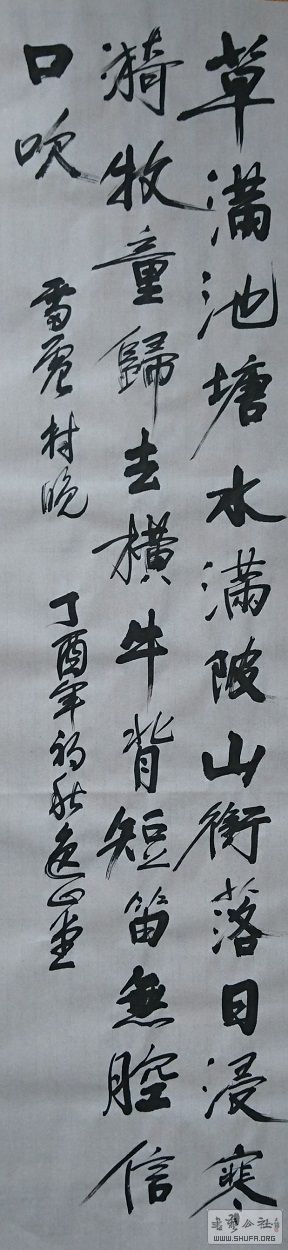 草滿池塘水滿陂山銜落日浸寒
漪牧童歸去橫牛背短笛無腔信
口吹
雷震村晚
丁酉年初秋
公社
WWW.SHUFA.ORG